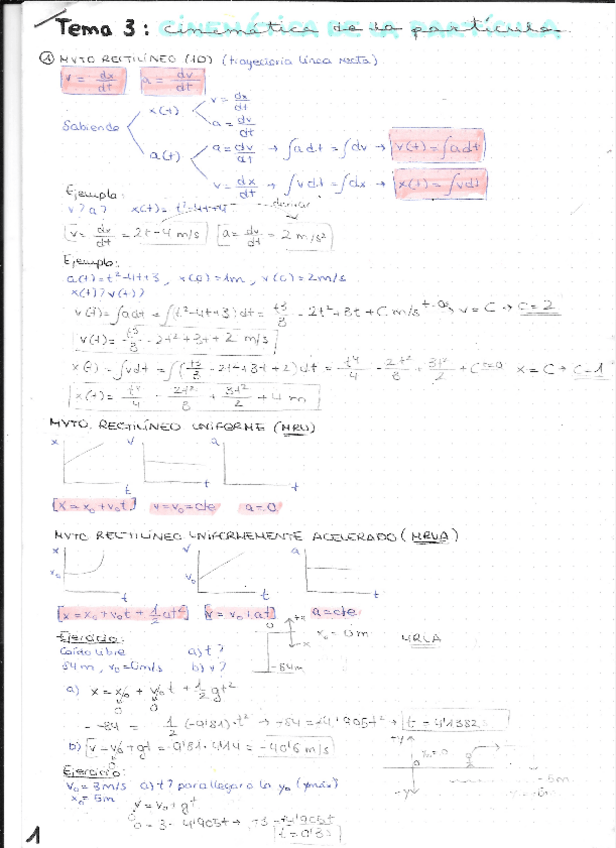 Tema 3: cinemática de la partícula
① MVTO RECTILÍNEO (1D) (trayectoria línea recta)
v = dx/dt a = dv/dt
Sabiendo
x(t)
v = dx/dt
a = dv/dt
a(t)
a = dv/dt → ∫adt = ∫dv → v(t) = ∫adt
v = dx/dt → ∫vdt = ∫dx → x(t) = ∫vdt
Ejemplo:
v? a? x(t) = t²-4t+4 derivar
v = dx/dt = 2t-4 m/s a = dv/dt = 2 m/s²
Ejemplo:
a(t) = t²-4t+3, x(0)=1m, v(0)=2m/s
x(t)? v(t)?
v(t) = ∫adt = ∫(t²-4t+3)dt = t³/3 - 2t² + 3t + C m/s v = C → C = 2
v(t) = t³/3 - 2t² + 3t + 2 m/s
x(t) = ∫vdt = ∫(t³/3 - 2t² + 3t + 2)dt = x = C →
x(t) =
MVTO. RECTILÍNEO UNIFORME (MRU)
x v a
t t t
[x = x₀ + v₀t] v = v₀ = cte a = 0
MVTO RECTILÍNEO UNIFORMEMENTE ACELERADO (MRUA)
x v a
v₀ v₀
t t t
[x = x₀ + v₀t + 1/2 at²] [v = v₀ + at] a = cte
Ejercicio:
Caída libre a) t?
84m, v₀ = 0m/s b) v?
-84m
a) x = x₀ + v₀t + 1/2 gt²
-84 = 1/2 (-9'81)·t² → -84 = -4'905t² → t = 4'1382
b) v = v₀ + gt = -9'81·4'14 = -40'6 m/s
Ejercicio:
v₀ = 3m/s a) t? para llegar a la
x₀ = 5m
v = v₀ + gt
1